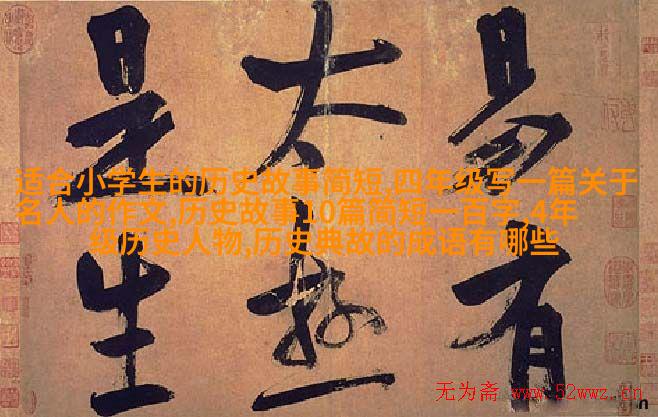 易有
太極
是生
适合小学生的历史故事简短,四年级写一篇关于
名人的作文,历史故事10篇简短一百字,4年
级历史人物,历史典故的成语有哪些
无为斋 www.52wwz.cn